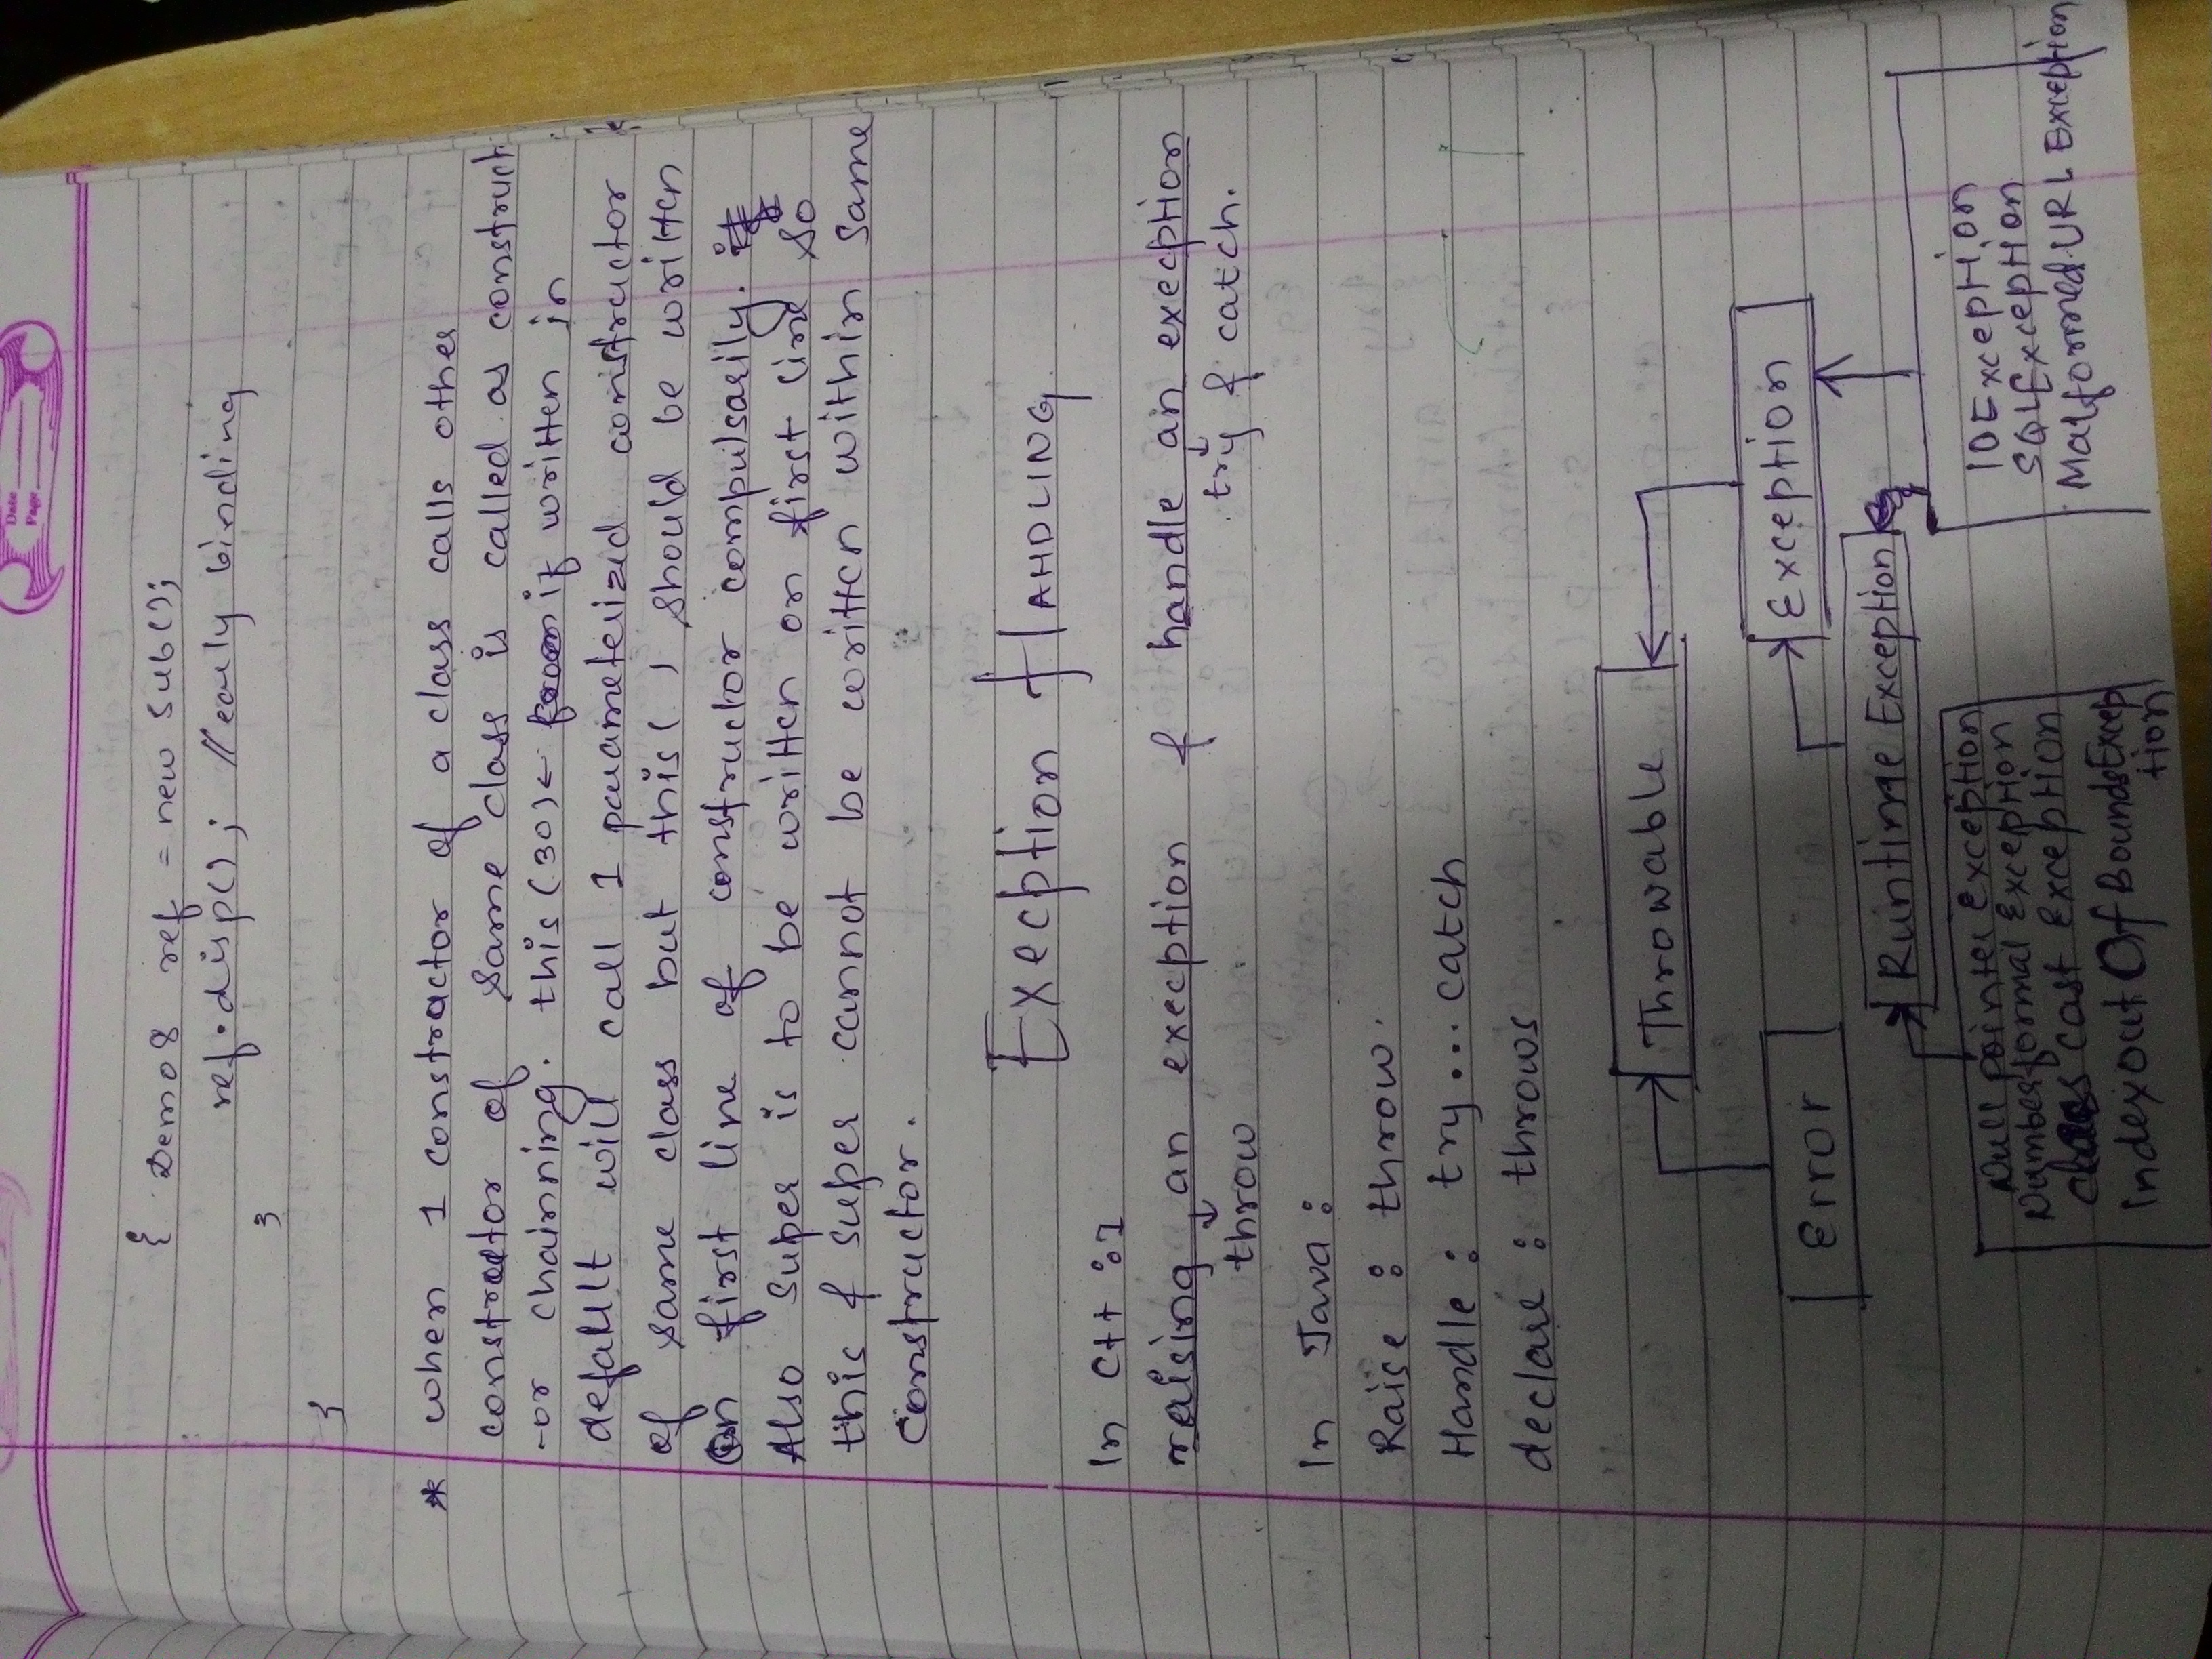 Date
Page
{ Demo8 ref = new Sub();
ref.disp(); //early binding
}
}
* when 1 constractor of a class calls other
constroctor of same class is called as construct
-or chainning. this (30)← if written in
default will call 1 parameterized constructor
of same class but this( ) should be written
on first line of constructor compulsarily.
Also super is to be written on first line so
this & super cannot be written within same
constructor.
Execption HANDLING
In C++ :1
raising an execption & handle an execption
throw try & catch.
In Java :
Raise : throw.
Handle : try... catch
declare : throws
Throwable
Error
Exception
Runtime Exception
Null pointer Exception
Numberformat Exception
class cast Exception
indexout Of BoundsExcep
tion
IOException
SQLException
Malformed URL Exception